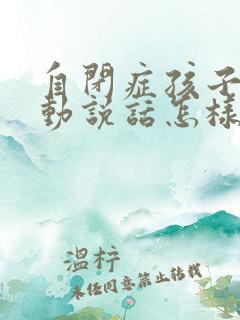 自閉症孩子
動說話怎樣
溫梓
未经同意禁止转载